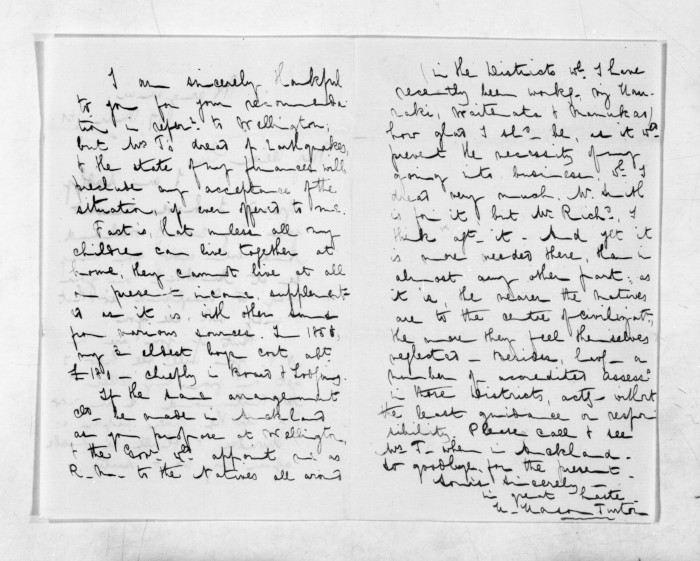 I am sincerely thankful
to you for your recommenda
tion in refer.ce to Wellington;
but Mrs T's dread of Earthquakes,
& the state of my finances will
preclude my acceptance of the
situation, if ever offered to me.
Fact is, that unless all my
children can live together at
home, they cannot live at all
on present income supplement.d
as it is, with other sums
from various sources. In 1858,
my 2 eldest boys cost, abt
£180 - chiefly in Board & Lodging.
If the same arrangement
cld be made in Auckland
as you propose at Wellington,
& the Gov.r wd appoint me as
R. M. to the Natives all around
(in the Districts wh. I have
recently been workg, viz Hau-
raki, Waitemata & Manukau)
how glad I shd be, as it wld
prevent the necessity of my
going into business, wh. I
dread very much. Mr. Smith
is for it but Mr. Richd, I
think agt it. And yet it
is more needed there, than in
almost any other part; as
it is, the nearer the Natives
are to the centre of civilizatn,
the more they feel themselves
neglected - Besides, havg a
number of accredited Assessrs
in these Districts, actg without
the least guidance or respon
sibility. Please call & see
Mrs T- when in Auckland.
So goodbye for the present.
Yours Sincerely -
in great haste -
H. Hanson Turton